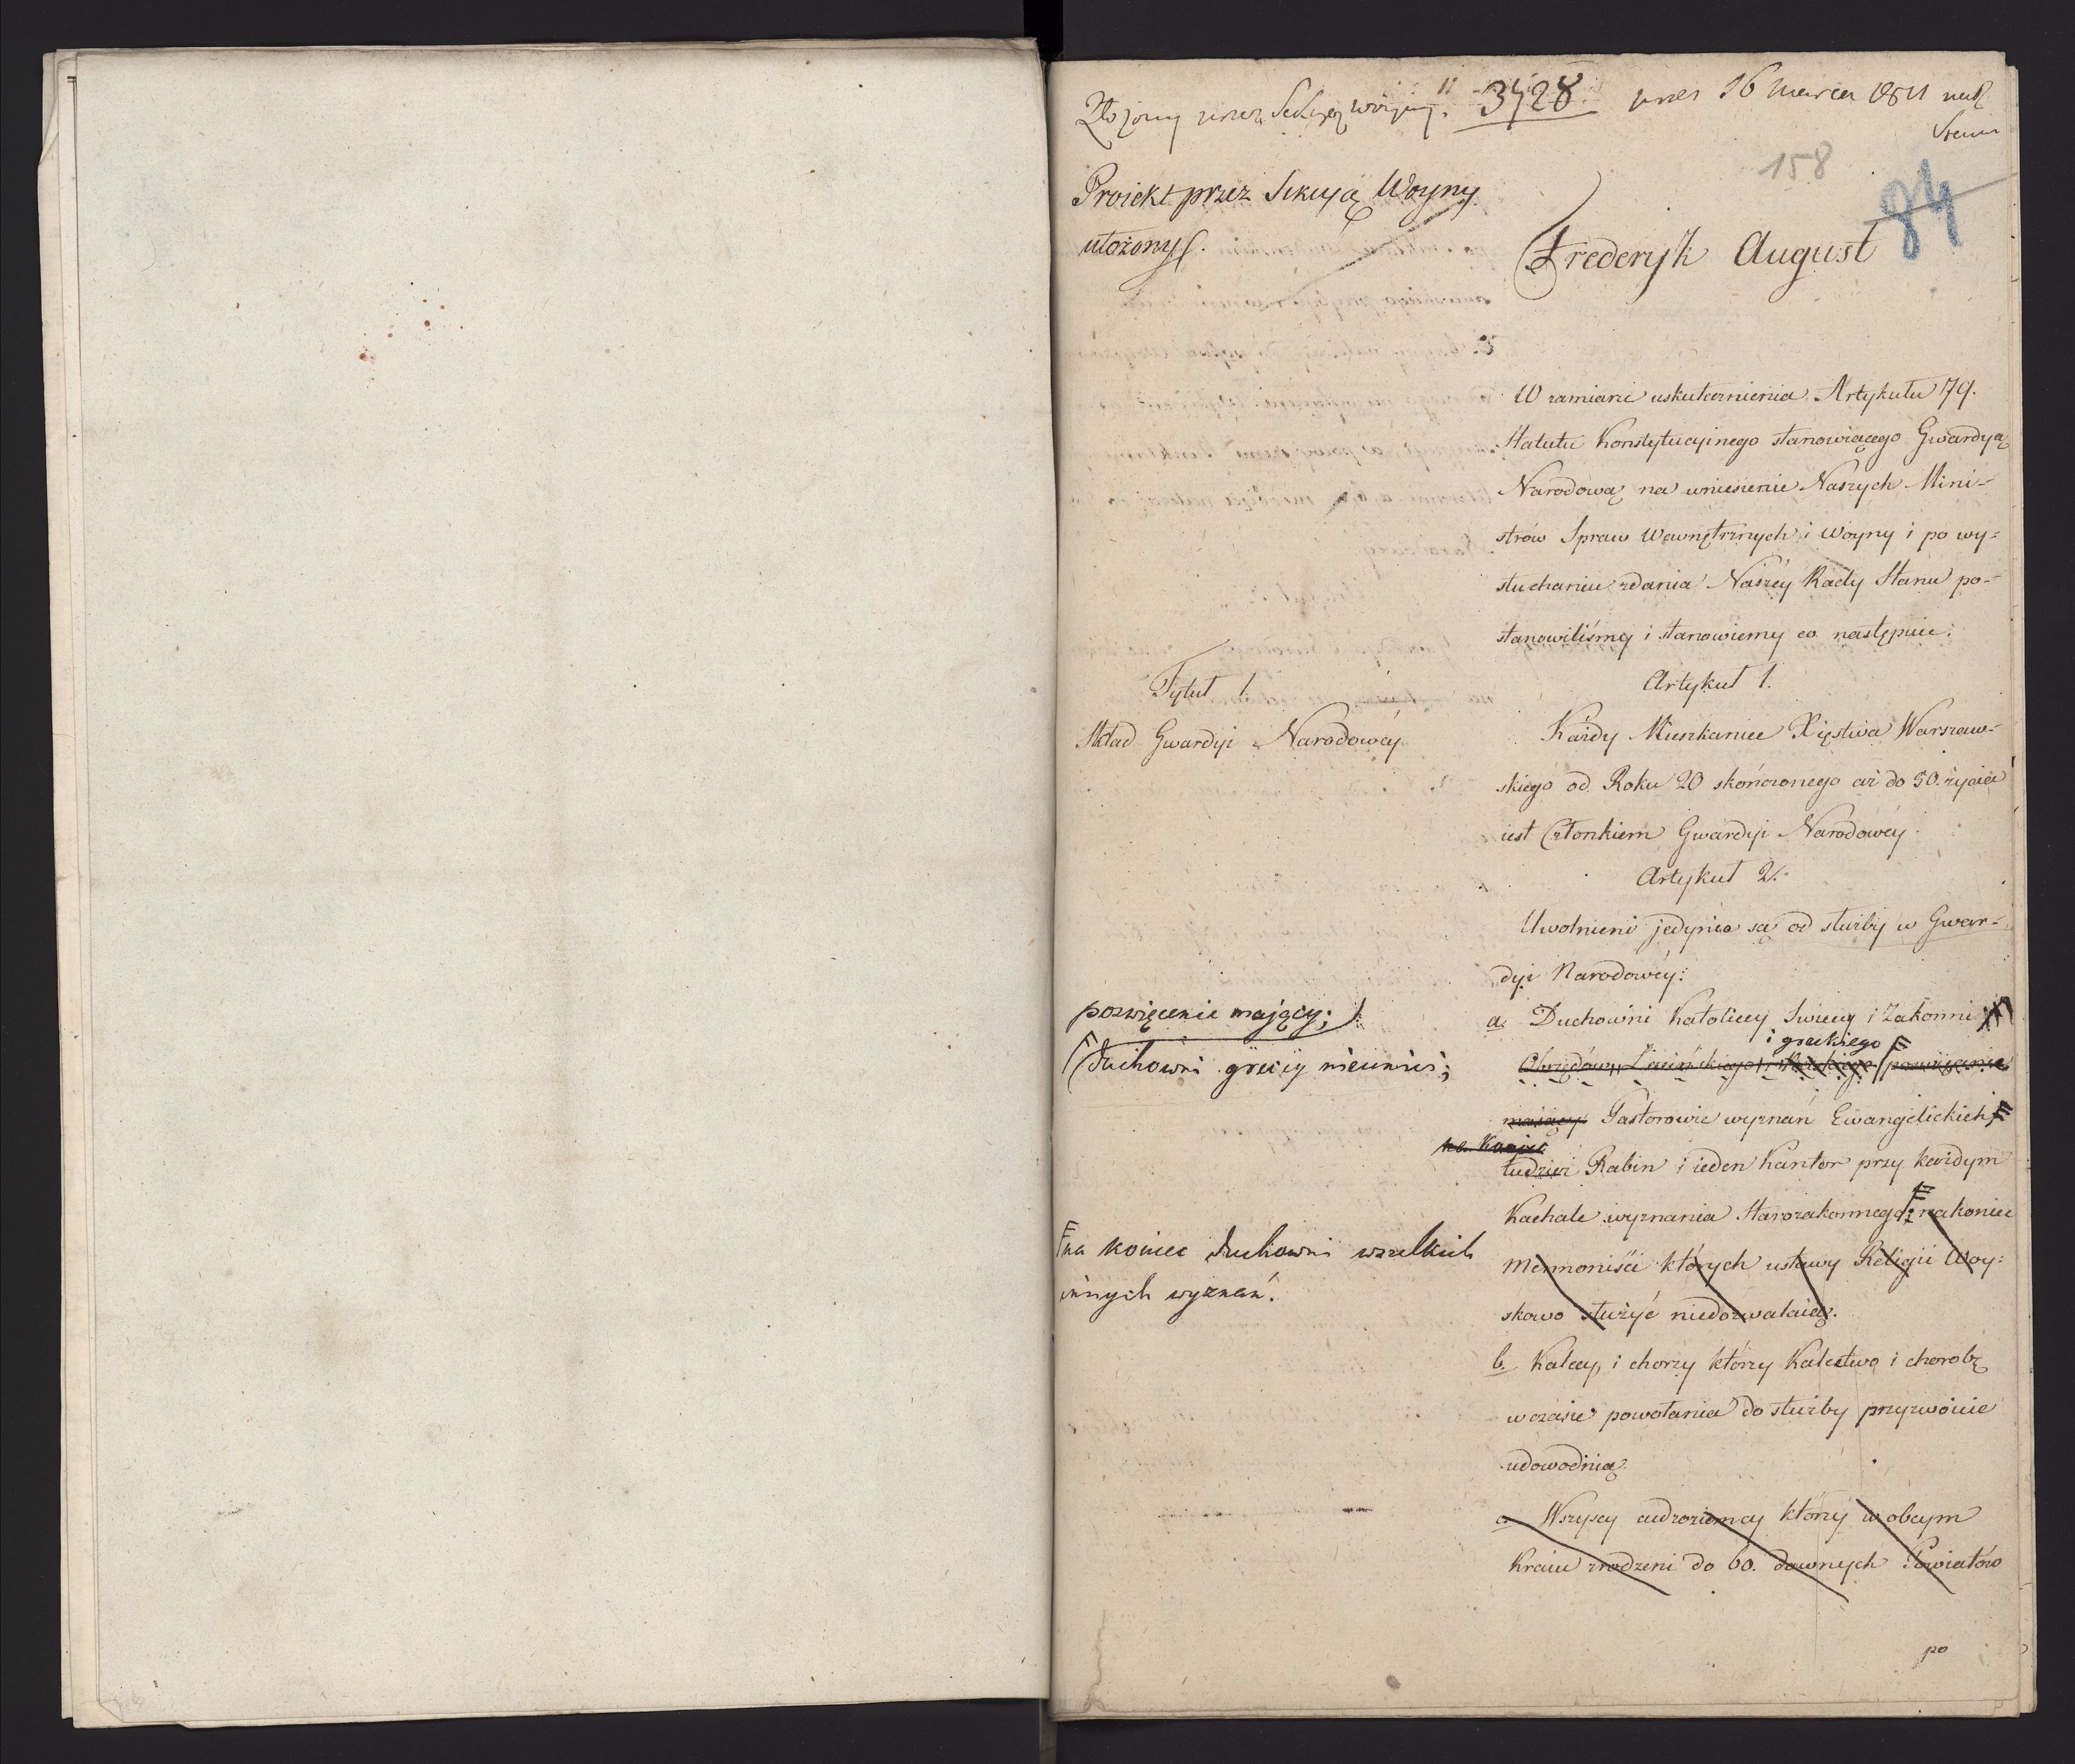 Złożony przez Sekcyą woyny. 3428 dnia 16 Marca 1811
158
84
Proiekt przez Sekcyją Woyny
ułożony.
Frederyk August
W zamiarze uskutecznienia Artykułu 79.
Statutu Konstytucyinego stanowiącego Gwardyą
Narodową na wniesienie Naszych Mini-
strów Spraw Wewnętrznych i Woyny i po wy-
słuchaniu zdania Naszey Rady Stanu po-
stanowiliśmy i stanowiemy co następuie:
Tytuł 1.
Skład Gwardyi Narodowey
Artykuł 1.
Każdy Mieszkaniec Xięstwa Warszaw-
skiego od Roku 20 skończonego aż do 50. życia
iest Członkiem Gwardyi Narodowey.
Artykuł 2.
Uwolnieni jedynie są od służby w Gwar-
dyi Narodowey:
poswięcenie mający;
a. Duchowni Katoliccy Swieccy i Zakonni
i greckiego
Duchowni greccy nieunici;
Obrządów Łacińskiego poswięcenie
mający Pastorowie wyznań Ewangelickich
na koniec
tudzież Rabin i ieden Kantor przy każdym
Kachale wyznania Starozakonnego; nakoniec
na koniec duchowni wszelkich
innych wyznań.
Mennoniści których ustawy Religii Woy-
skowo służyć niedozwalaią.
b. Kalecy i chorzy którzy Kalectwo i chorobę
w czasie powołania do służby przyzwoicie
udowodnią.
c. Wszyscy cudzoziemcy którzy w obcym
Kraiu zrodzeni do 60. dawnych Powiatów
po